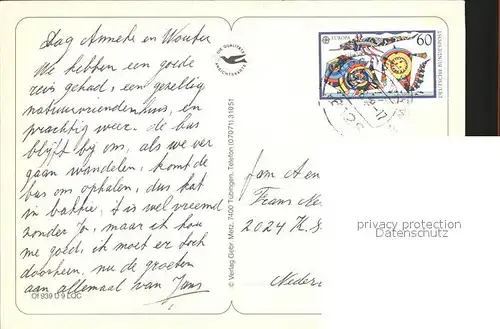 Dag Anneke en Wouter
We hebben een goede
reis gehad, een gezellig
natuurvriendenhuis, en
prachtig weer. de bus
blijft by ons, als we ver
gaan wandelen, komt de
bus ons ophalen, dus kat
in bakkie, it is wel vreemd
zonder , maar ik hou
me goed, ik moet er toch
doorheen, nu de groeten
aan allemaal van Jans
Of 939 D 9 LQC
DIE QUALITÄTS
ANSICHTSKARTE
© Verlag Gebr. Metz, 7400 Tübingen, Telefon (07071) 31051
EUROPA
60
DEUTSCHE BUNDESPOST
fam
Frans
2024 K.S
Neder
privacy protection
watermarks